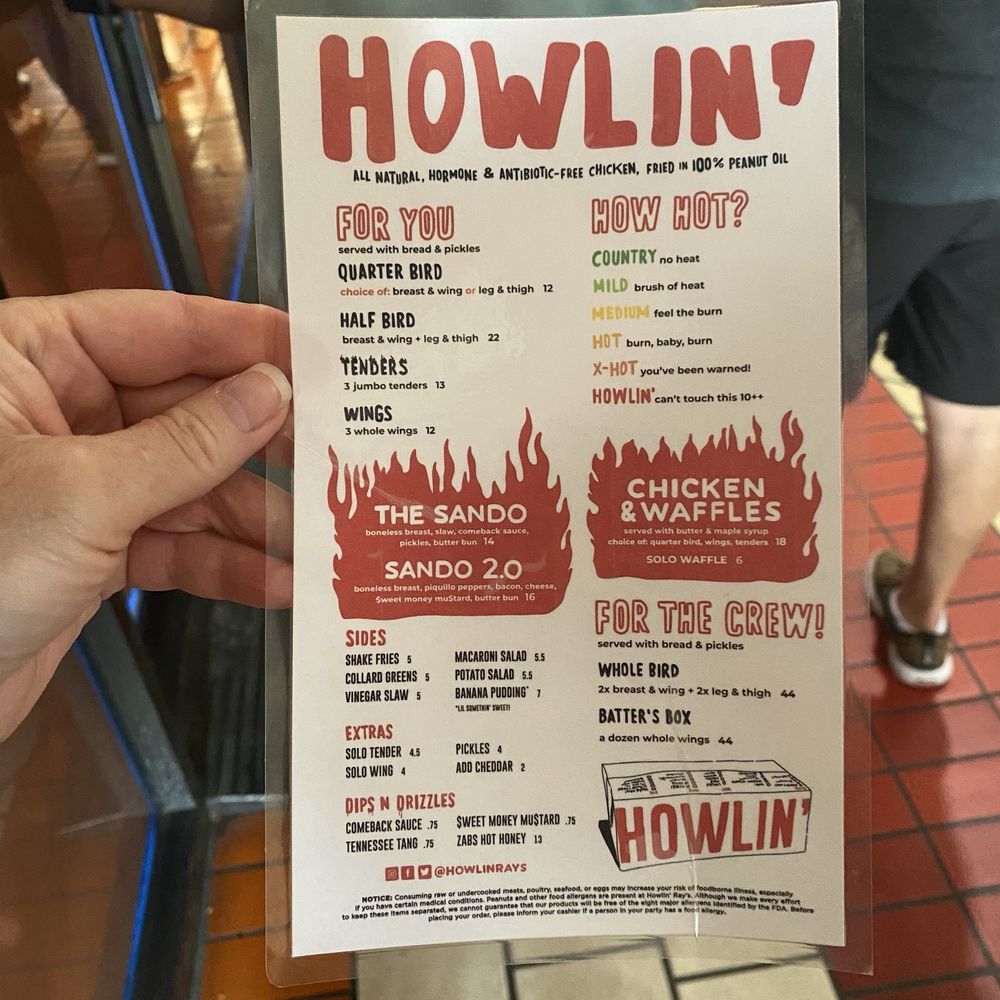 HOWLIN'
ALL NATURAL, HORMONE & ANTIBIOTIC-FREE CHICKEN, FRIED IN 100% PEANUT OIL
FOR YOU
served with bread & pickles
QUARTER BIRD
choice of: breast & wing or leg & thigh 12
HALF BIRD
breast & wing + leg & thigh 22
TENDERS
3 jumbo tenders 13
WINGS
3 whole wings 12
HOW HOT?
COUNTRY no heat
MILD brush of heat
MEDIUM feel the burn
HOT burn, baby, burn
X-HOT you've been warned!
HOWLIN' can't touch this 10++
THE SANDO
boneless breast, slaw, comeback sauce,
pickles, butter bun 14
SANDO 2.0
boneless breast, piquillo peppers, bacon, cheese,
$weet money mu$tard, butter bun 16
CHICKEN
& WAFFLES
served with butter & maple syrup
choice of: quarter bird, wings, tenders 18
SOLO WAFFLE 6
SIDES
SHAKE FRIES 5
COLLARD GREENS 5
VINEGAR SLAW 5
MACARONI SALAD 5.5
POTATO SALAD 5.5
BANANA PUDDING* 7
*LIL SOMETHIN' SWEET!
EXTRAS
SOLO TENDER 4.5
SOLO WING 4
PICKLES 4
ADD CHEDDAR 2
DIPS N DRIZZLES
COMEBACK SAUCE .75
TENNESSEE TANG .75
$WEET MONEY MU$TARD .75
ZABS HOT HONEY 13
@HOWLINRAYS
FOR THE CREW!
served with bread & pickles
WHOLE BIRD
2x breast & wing + 2x leg & thigh 44
BATTER'S BOX
a dozen whole wings 44
HOWLIN'
NOTICE: Consuming raw or undercooked meats, poultry, seafood, or eggs may increase your risk of foodborne illness, especially
if you have certain medical conditions. Peanuts and other food allergens are present at Howlin' Ray's. Although we make every effort
to keep these items separated, we cannot guarantee that our products will be free of the eight major allergens identified by the FDA. Before
placing your order, please inform your cashier if a person in your party has a food allergy.